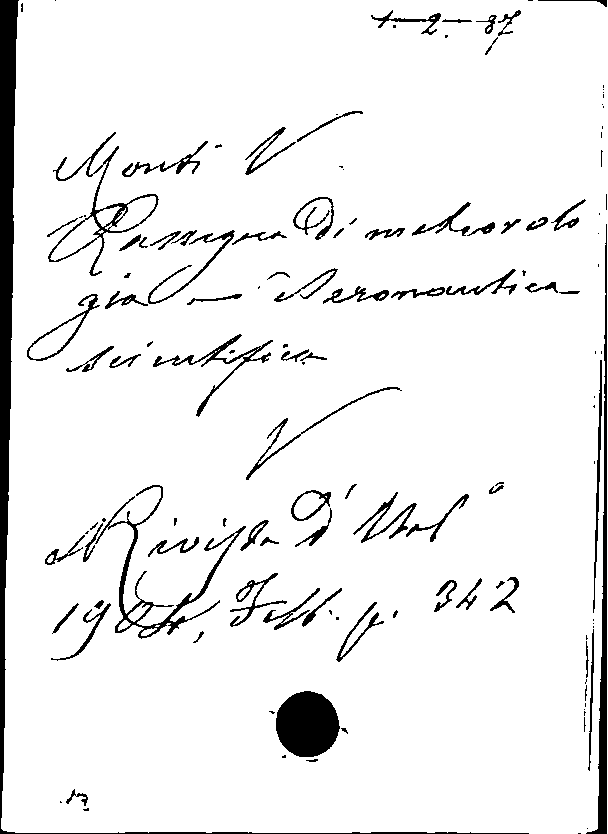 1. 2. 87
Monti V.
Rassegna di meteorolo
gia — Aeronautica
scientifica
V
Rivista d'Ital°
1904, Febb. p. 342